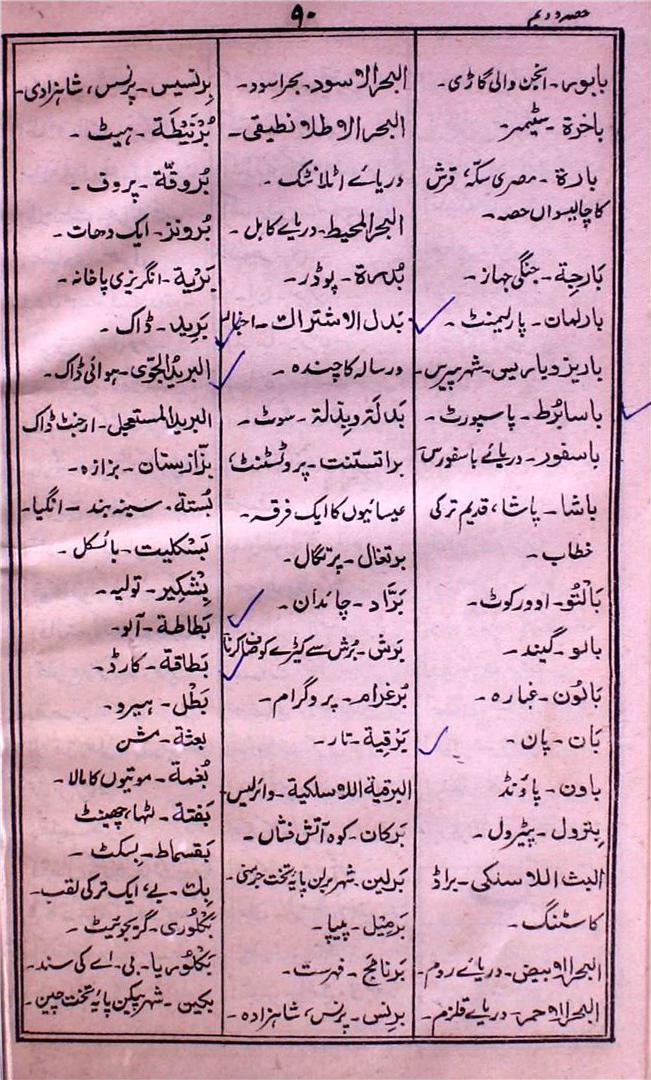 حصہ دوم
۹۰
بابور۔ انجن والی گاڑی۔
باخرة۔ سٹیمر۔
بارة۔ مصری سکّہ، قرش
کا چالیسواں حصہ۔
بَارجة۔ جنگی جہاز۔
بارلمان۔ پارلیمنٹ۔
باریز و باریس۔ شہر پیرس۔
باسابُرط۔ پاسپورٹ۔
باسفور۔ دریائے باسفورس
باشا۔ پاشا، قدیم ترکی
خطاب۔
بَالْتُو۔ اوورکوٹ۔
بالو۔ گیند۔
بَالُون۔ غبارہ۔
بَان۔ پان۔
باون۔ پاؤنڈ
بِترول۔ پیٹرول۔
البث اللاسلکی۔ براڈ
کاسٹنگ۔
البحر الابیض۔ دریائے روم۔
البحر الاحمر۔ دریائے قلزم۔
البحر الاسود۔ بحر اسود۔
البحر الاطلانطیقی۔
دریائے اٹلانٹک۔
البحر المحیط۔ دریائے کاہل۔
بُدرة۔ پوڈر۔
بَدل الاشتراك۔ اخبار
ورسالہ کا چندہ۔
بَدلَة وبِذلة۔ سوٹ۔
براتستنت۔ پروٹسٹنٹ،
عیسائیوں کا ایک فرقہ۔
برتغال۔ پرتگال۔
بَرَّاد۔ چائدان۔
بَرش۔ بُرش سے کپڑے کو صاف کرنا
بُرغرام۔ پروگرام۔
بَرْقِیة۔ تار۔
البرقیة اللاسلکیة۔ وائرلیس۔
بُرکان۔ کوہ آتش فشاں۔
بَرلین۔ شہر برلن پایۂ تخت جرمنی۔
بَرمِیل۔ پیپا۔
بَرنامَج۔ فہرست۔
برنس۔ پرنس، شاہزادہ۔
بِرنسیس۔ پرنسس، شاہزادی۔
بُرْنَیْطَة۔ ہیٹ۔
بُروقّة۔ پروف۔
بُرونز۔ ایک دھات۔
بَرْیة۔ انگریزی پاخانہ۔
بَرِید۔ ڈاک۔
البریدُ الجَوّی۔ ہوائی ڈاک۔
البرید المستعجل۔ ارجنٹ ڈاک
بزّازستان۔ بزازہ۔
بُستة۔ سینہ بند۔ انگیا۔
بَسْکلیت۔ بائسکل۔
بِشْکِیر۔ تولیہ۔
بَطاطة۔ آلو۔
بَطاقة۔ کارڈ۔
بَطَل۔ ہیرو۔
بعثة۔ مشن
بُغمة۔ موتیوں کا مالا۔
بَفتة۔ لٹھا، چھینٹ
بَقسماط۔ بسکٹ۔
بِك۔ بے، ایک ترکی لقب۔
بَکَلُوری۔ گریجوئیٹ۔
بَکَلُوریا۔ بی۔ اے کی سند۔
بکین۔ شہر پیکن پایۂ تخت چین۔